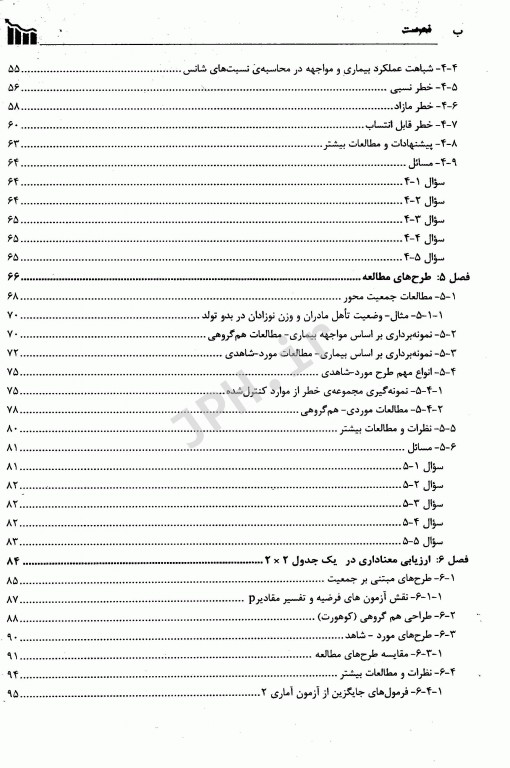 ب فهرست
۴-۴- شباهت عملکرد بیماری و مواجهه در محاسبه‌ی نسبت‌های شانس ۵۵
۴-۵- خطر نسبی ۵۶
۴-۶- خطر مازاد ۵۸
۴-۷- خطر قابل انتساب ۶۰
۴-۸- پیشنهادات و مطالعات بیشتر ۶۳
۴-۹- مسائل ۶۴
سؤال ۱-۴ ۶۴
سؤال ۲-۴ ۶۴
سؤال ۳-۴ ۶۵
سؤال ۴-۴ ۶۵
سؤال ۵-۴ ۶۵
فصل ۵: طرح‌های مطالعه ۶۶
۵-۱- مطالعات جمعیت محور ۶۸
۵-۱-۱- مثال- وضعیت تأهل مادران و وزن نوزادان در بدو تولد ۷۰
۵-۲- نمونه‌برداری بر اساس مواجهه بیماری- مطالعات هم‌گروهی ۷۰
۵-۳- نمونه‌برداری بر اساس بیماری- مطالعات مورد-شاهدی ۷۲
۵-۴- انواع مهم طرح مورد-شاهدی ۷۵
۵-۴-۱- نمونه‌گیری مجموعه‌ی خطر از موارد کنترل‌شده ۷۵
۵-۴-۲- مطالعات موردی- هم‌گروهی ۷۸
۵-۵- نظرات و مطالعات بیشتر ۸۰
۵-۶- مسائل ۸۱
سؤال ۱-۵ ۸۱
سؤال ۲-۵ ۸۲
سؤال ۳-۵ ۸۲
سؤال ۴-۵ ۸۲
سؤال ۵-۵ ۸۳
فصل ۶: ارزیابی معناداری در یک جدول ۲ × ۲ ۸۴
۶-۱- طرح‌های مبتنی بر جمعیت ۸۵
۶-۱-۱- نقش آزمون های فرضیه و تفسیر مقادیر p ۸۷
۶-۲- طراحی هم گروهی (کوهورت) ۸۸
۶-۳- طرح‌های مورد - شاهد ۹۰
۶-۳-۱- مقایسه طرح‌های مطالعه ۹۱
۶-۴- نظرات و مطالعات بیشتر ۹۴
۶-۴-۱- فرمول‌های جایگزین از آزمون آماری ۲ ۹۵
JPH.ir